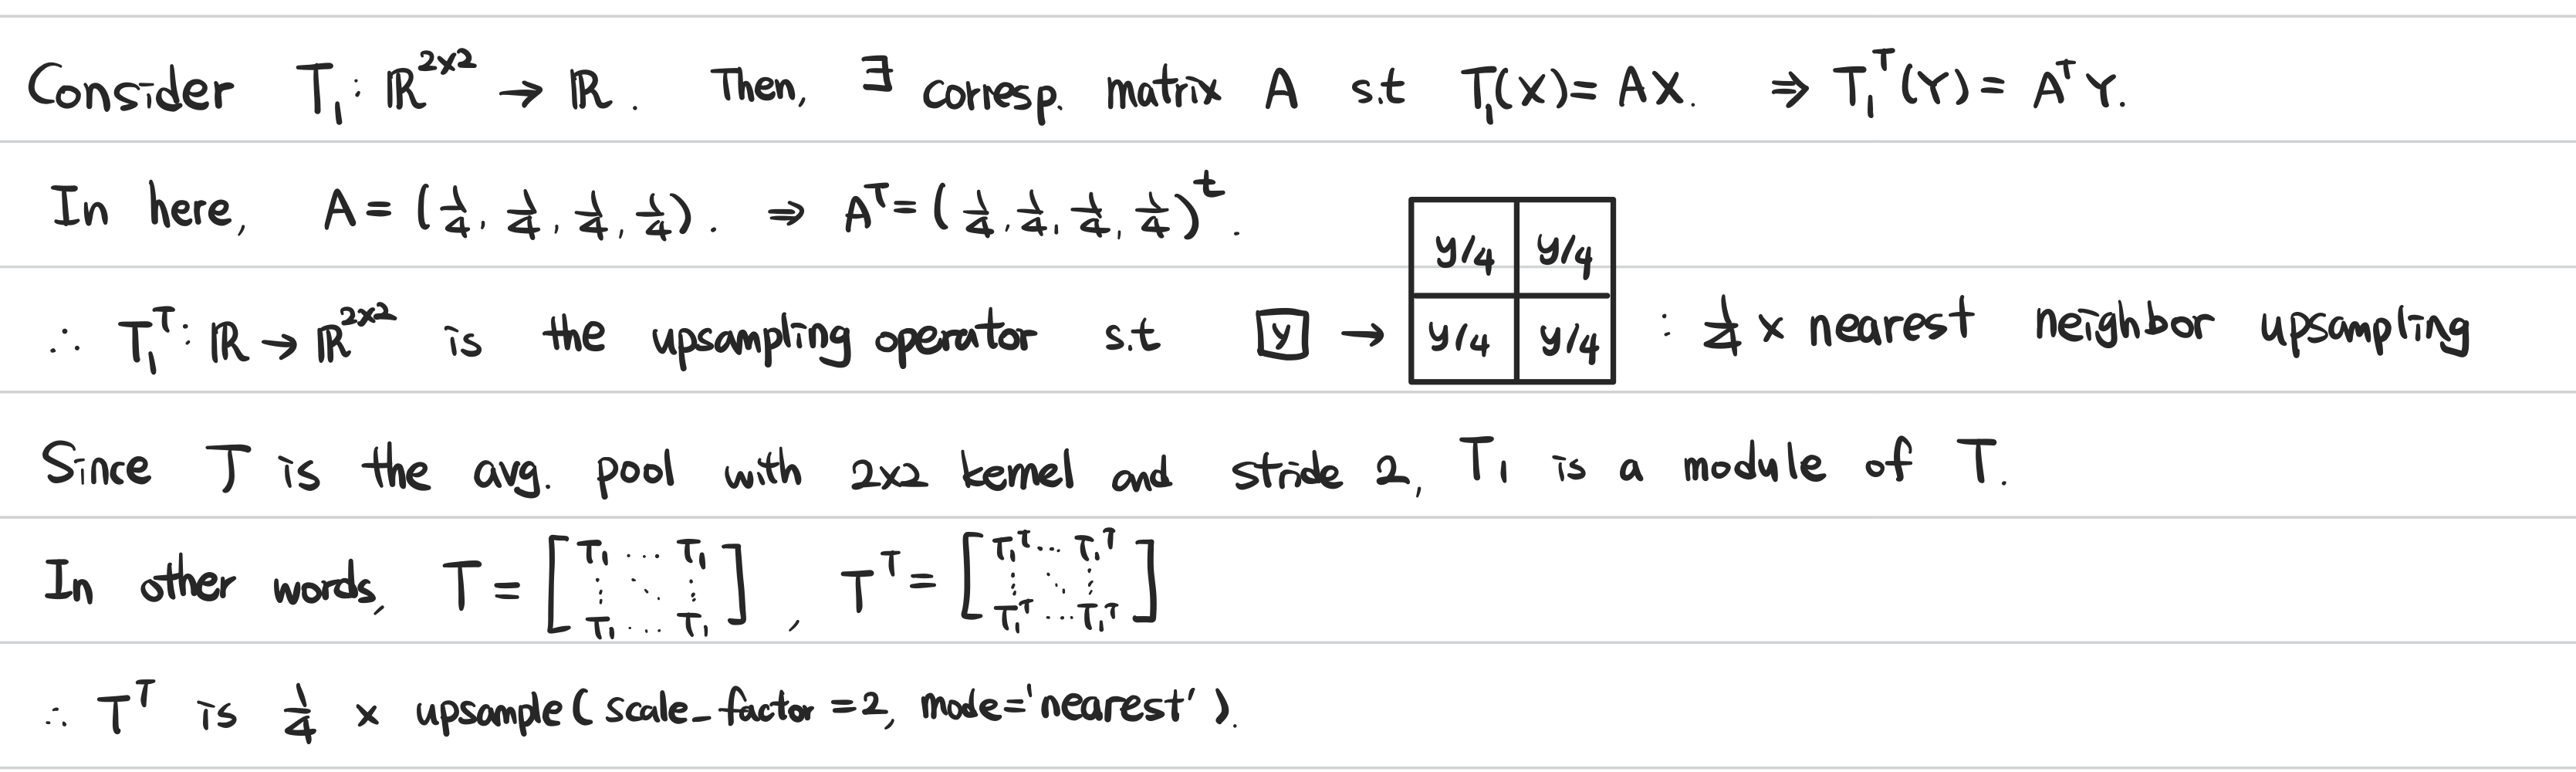 Consider T₁ : ℝ^{2×2} → ℝ . Then, ∃ corresp. matrix A s.t T₁(X) = AX. ⇒ T₁^T(Y) = A^T Y.
In here, A = (1/4, 1/4, 1/4, 1/4) . ⇒ A^T = (1/4, 1/4, 1/4, 1/4)^t .
∴ T₁^T : ℝ → ℝ^{2×2} is the upsampling operator s.t y → y/4 y/4 y/4 y/4 : 1/4 × nearest neighbor upsampling
Since T is the avg. pool with 2×2 kernel and stride 2, T₁ is a module of T.
In other words, T = [T₁ ⋯ T₁ ⋮ ⋱ ⋮ T₁ ⋯ T₁] , T^T = [T₁^T ⋯ T₁^T ⋮ ⋱ ⋮ T₁^T ⋯ T₁^T]
∴ T^T is 1/4 × upsample( scale_factor = 2, mode = 'nearest' ).